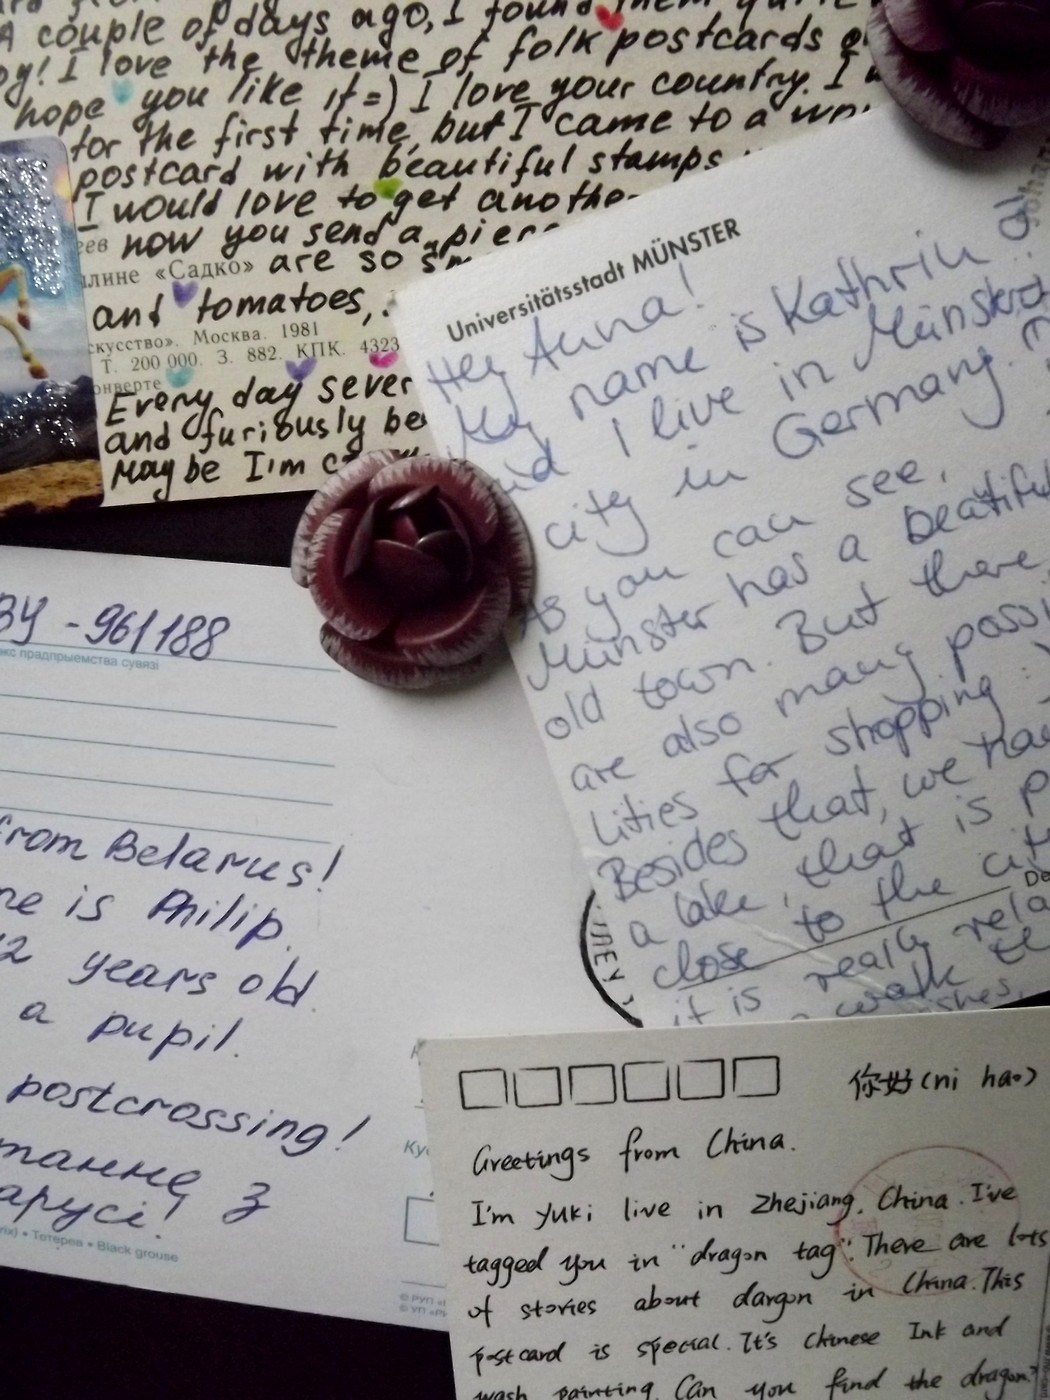 A couple of days ago, I found them
I love the theme of folk postcards
hope you like it =) I love your country. I
for the first time, but I came to a
postcard with beautiful stamps
I would love to get
now you send a
«Садко» are so
and tomatoes,
Москва. 1981
Т. 200 000. З. 882. КПК. 4323
Every day
and furiously
Maybe I'm
Universitätsstadt MÜNSTER
Hey Anna!
My name is Kathrin
I live in
city in Germany.
As you can see,
Münster has a
old town. But there
are also many
lities for shopping :)
Besides that, we
a lake, that is
close to the
it is really
walk
-961188
прадпрыемства сувязі
from Belarus!
is Philip.
years old.
a pupil.
postcrossing!
З
• Тетерев • Black grouse
你好 (ni hao)
Greetings from China.
I'm Yuki live in Zhejiang, China. I've
tagged you in "dragon tag". There are lots
of stories about dargon in China. This
postcard is special. It's Chinese Ink and
wash painting. Can you find the dragon?